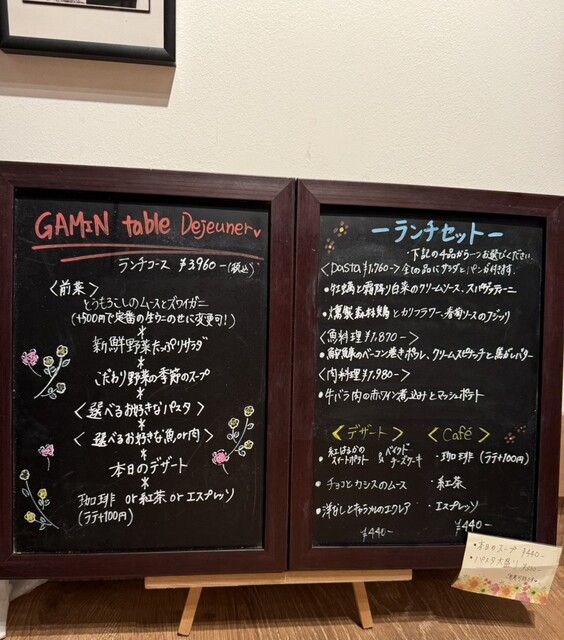 GAMIN table Dejeuner
ランチコース ¥3,960-(税込)
〈前菜〉
とうもろこしのムースとズワイガニ
(+500円で定番の生ウニのせに変更可!)
*
新鮮野菜たっぷりサラダ
*
こだわり野菜の季節のスープ
*
〈選べるお好きなパスタ〉
*
〈選べるお好きな魚or肉〉
*
本日のデザート
*
珈琲 or 紅茶 or エスプレッソ
(ラテ+100円)
ーランチセットー
・下記の4品から一つお選びください
〈Pasta ¥1,760-〉全ての品にサラダとパンが付きます。
・牡蠣と霜降り白菜のクリームソース、スパゲッティーニ
・燻製森林鶏とカリフラワー、香菊ソースのフジッリ
〈魚料理 ¥1,870-〉
のベーコン巻きポワレ、クリームスピナッチと焦がしバター
〈肉料理 ¥1,980-〉
・牛バラ肉の赤ワイン煮込みとマッシュポテト
〈デザート〉 〈Café〉
・紅はるかのスイートポテト & ベイクドチーズケーキ ・珈琲 (ラテ+100円)
・チョコとカシスのムース ・紅茶
・洋なしとキャラメルのエクレア ・エスプレッソ
¥440- ¥440-
・本日のスープ ¥440-
・パスタ大盛り